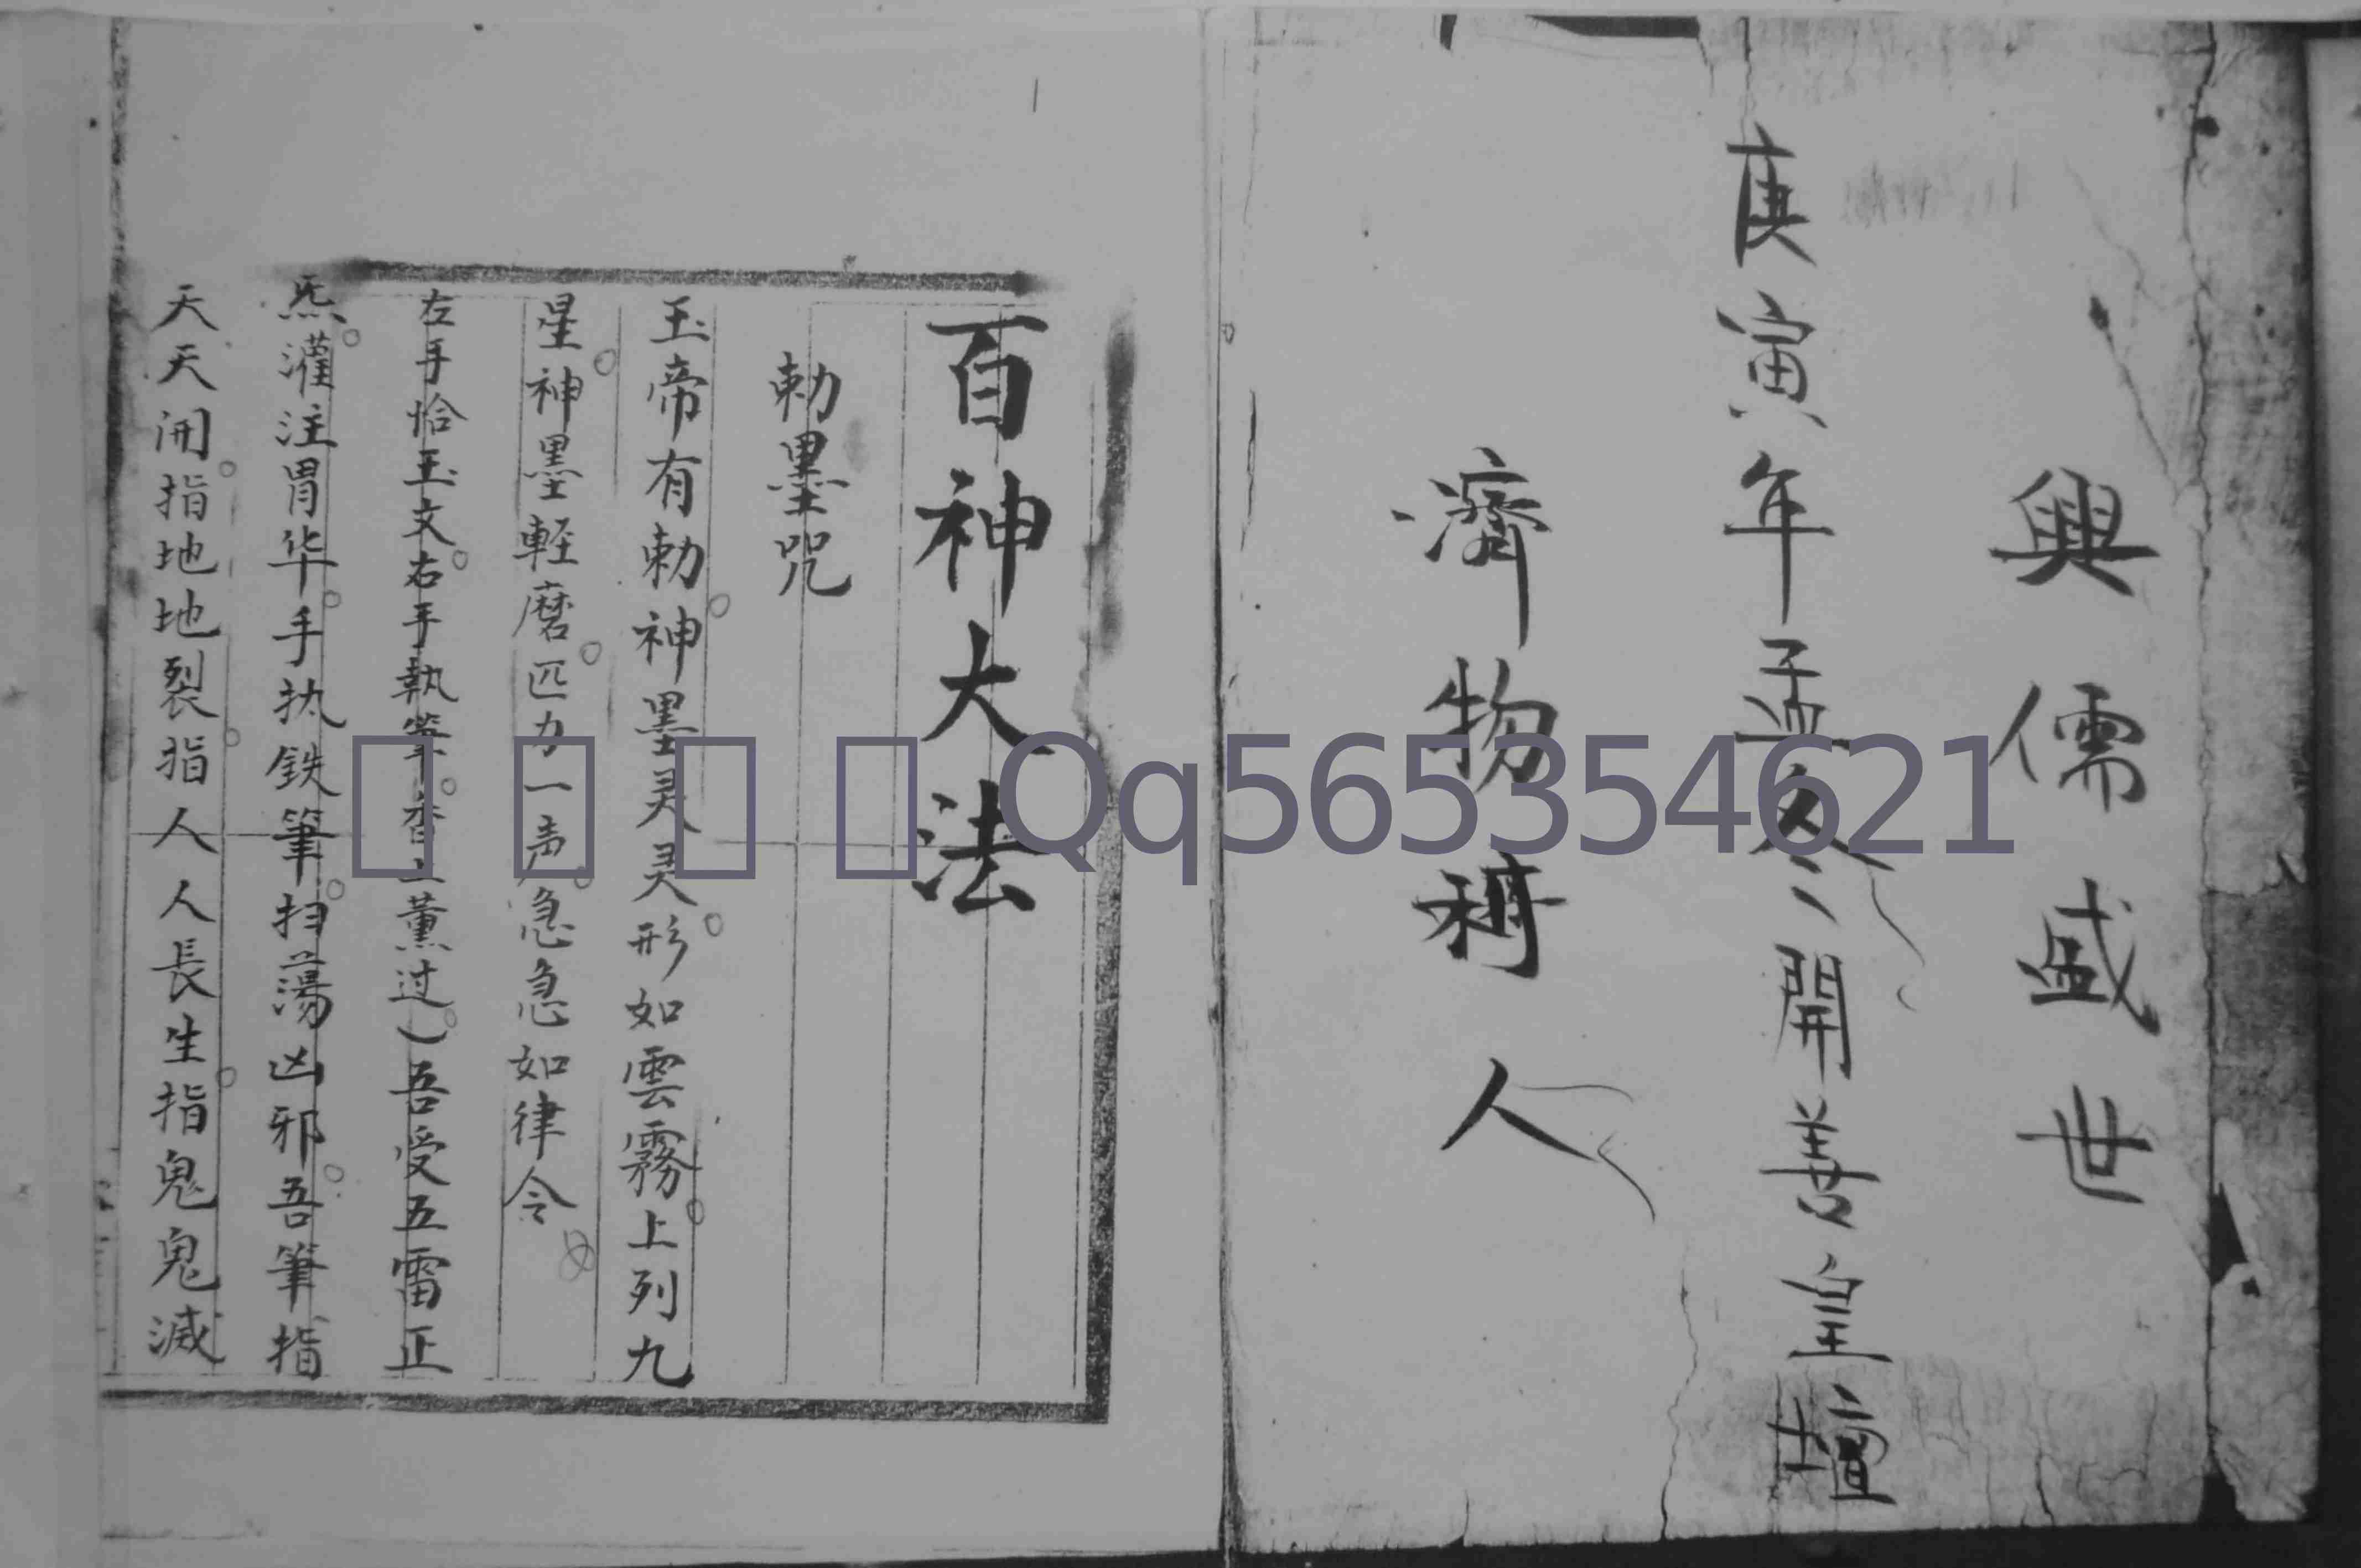 興儒盛世
庚寅年孟冬開善皇壇
濟物利人
百神大法
勅墨咒
玉帝有勅神墨灵灵形如雲霧上列九
星神墨輕磨匹力一声急急如律令
左手恰玉文右手執筆香上薰过)吾受五雷正
炁灌注胃华手执鉄筆扫蕩凶邪吾筆指
天天开指地地裂指人人長生指鬼鬼滅
Qq565354621